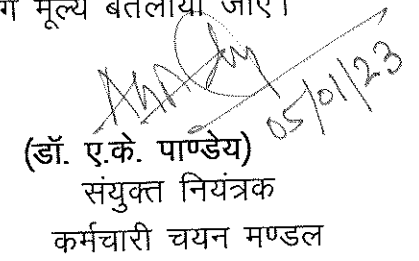 मूल्य बतलाया जाए।
05/01/23
(डॉ. ए.के. पाण्डेय)
संयुक्त नियंत्रक
कर्मचारी चयन मण्डल